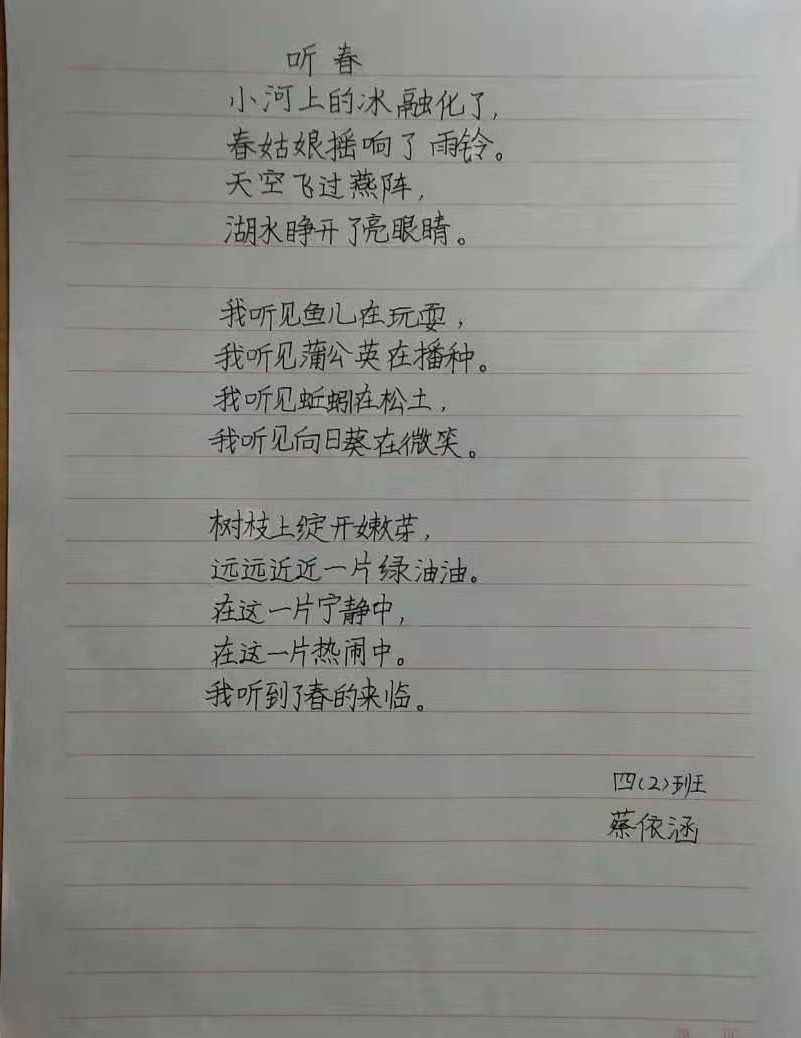 听春
小河上的冰融化了,
春姑娘摇响了雨铃。
天空飞过燕阵,
湖水睁开了亮眼睛。
我听见鱼儿在玩耍,
我听见蒲公英在播种。
我听见蚯蚓在松土,
我听见向日葵在微笑。
树枝上绽开嫩芽,
远远近近一片绿油油。
在这一片宁静中,
在这一片热闹中。
我听到了春的来临。
四(2)班
蔡依涵